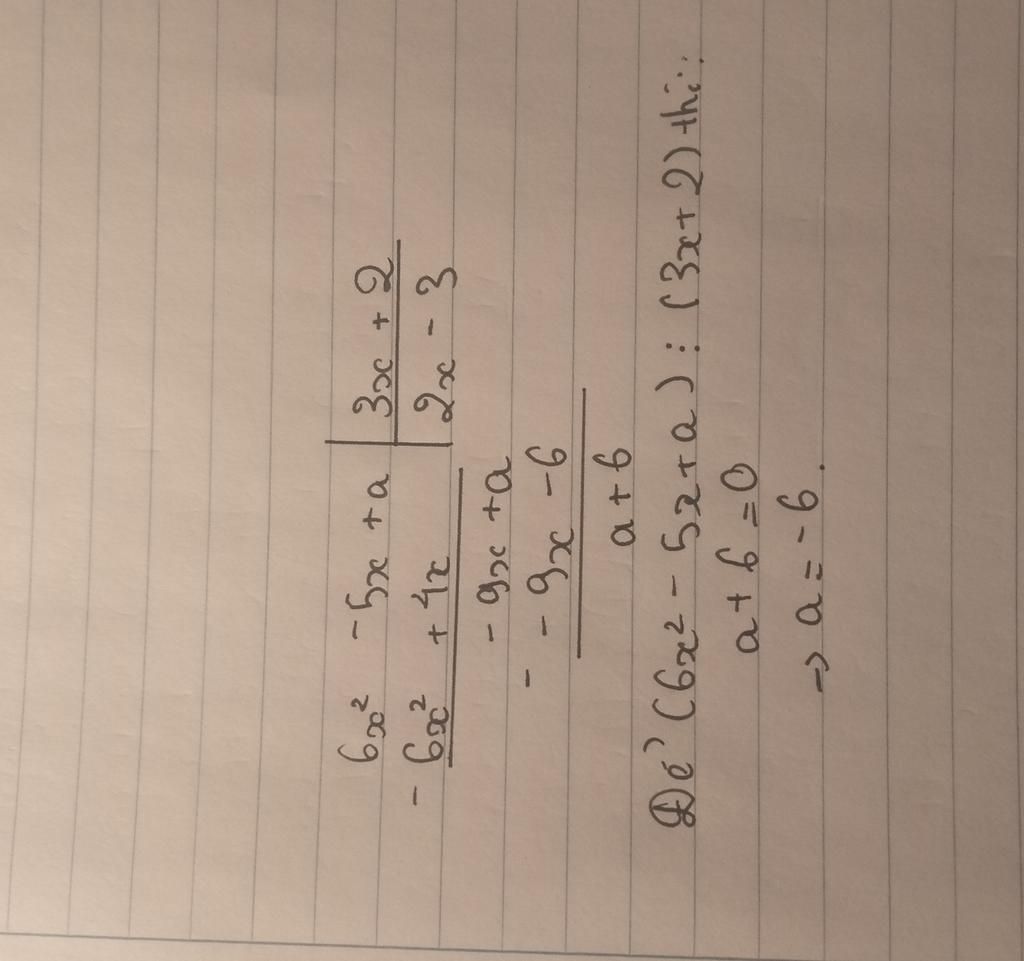 6x² - 5x + a | 3x + 2
- 6x² + 4x | 2x - 3
- 9x + a
- - 9x - 6
a + 6
Để (6x² - 5x + a) : (3x + 2) thì:
a + 6 = 0
→ a = -6.